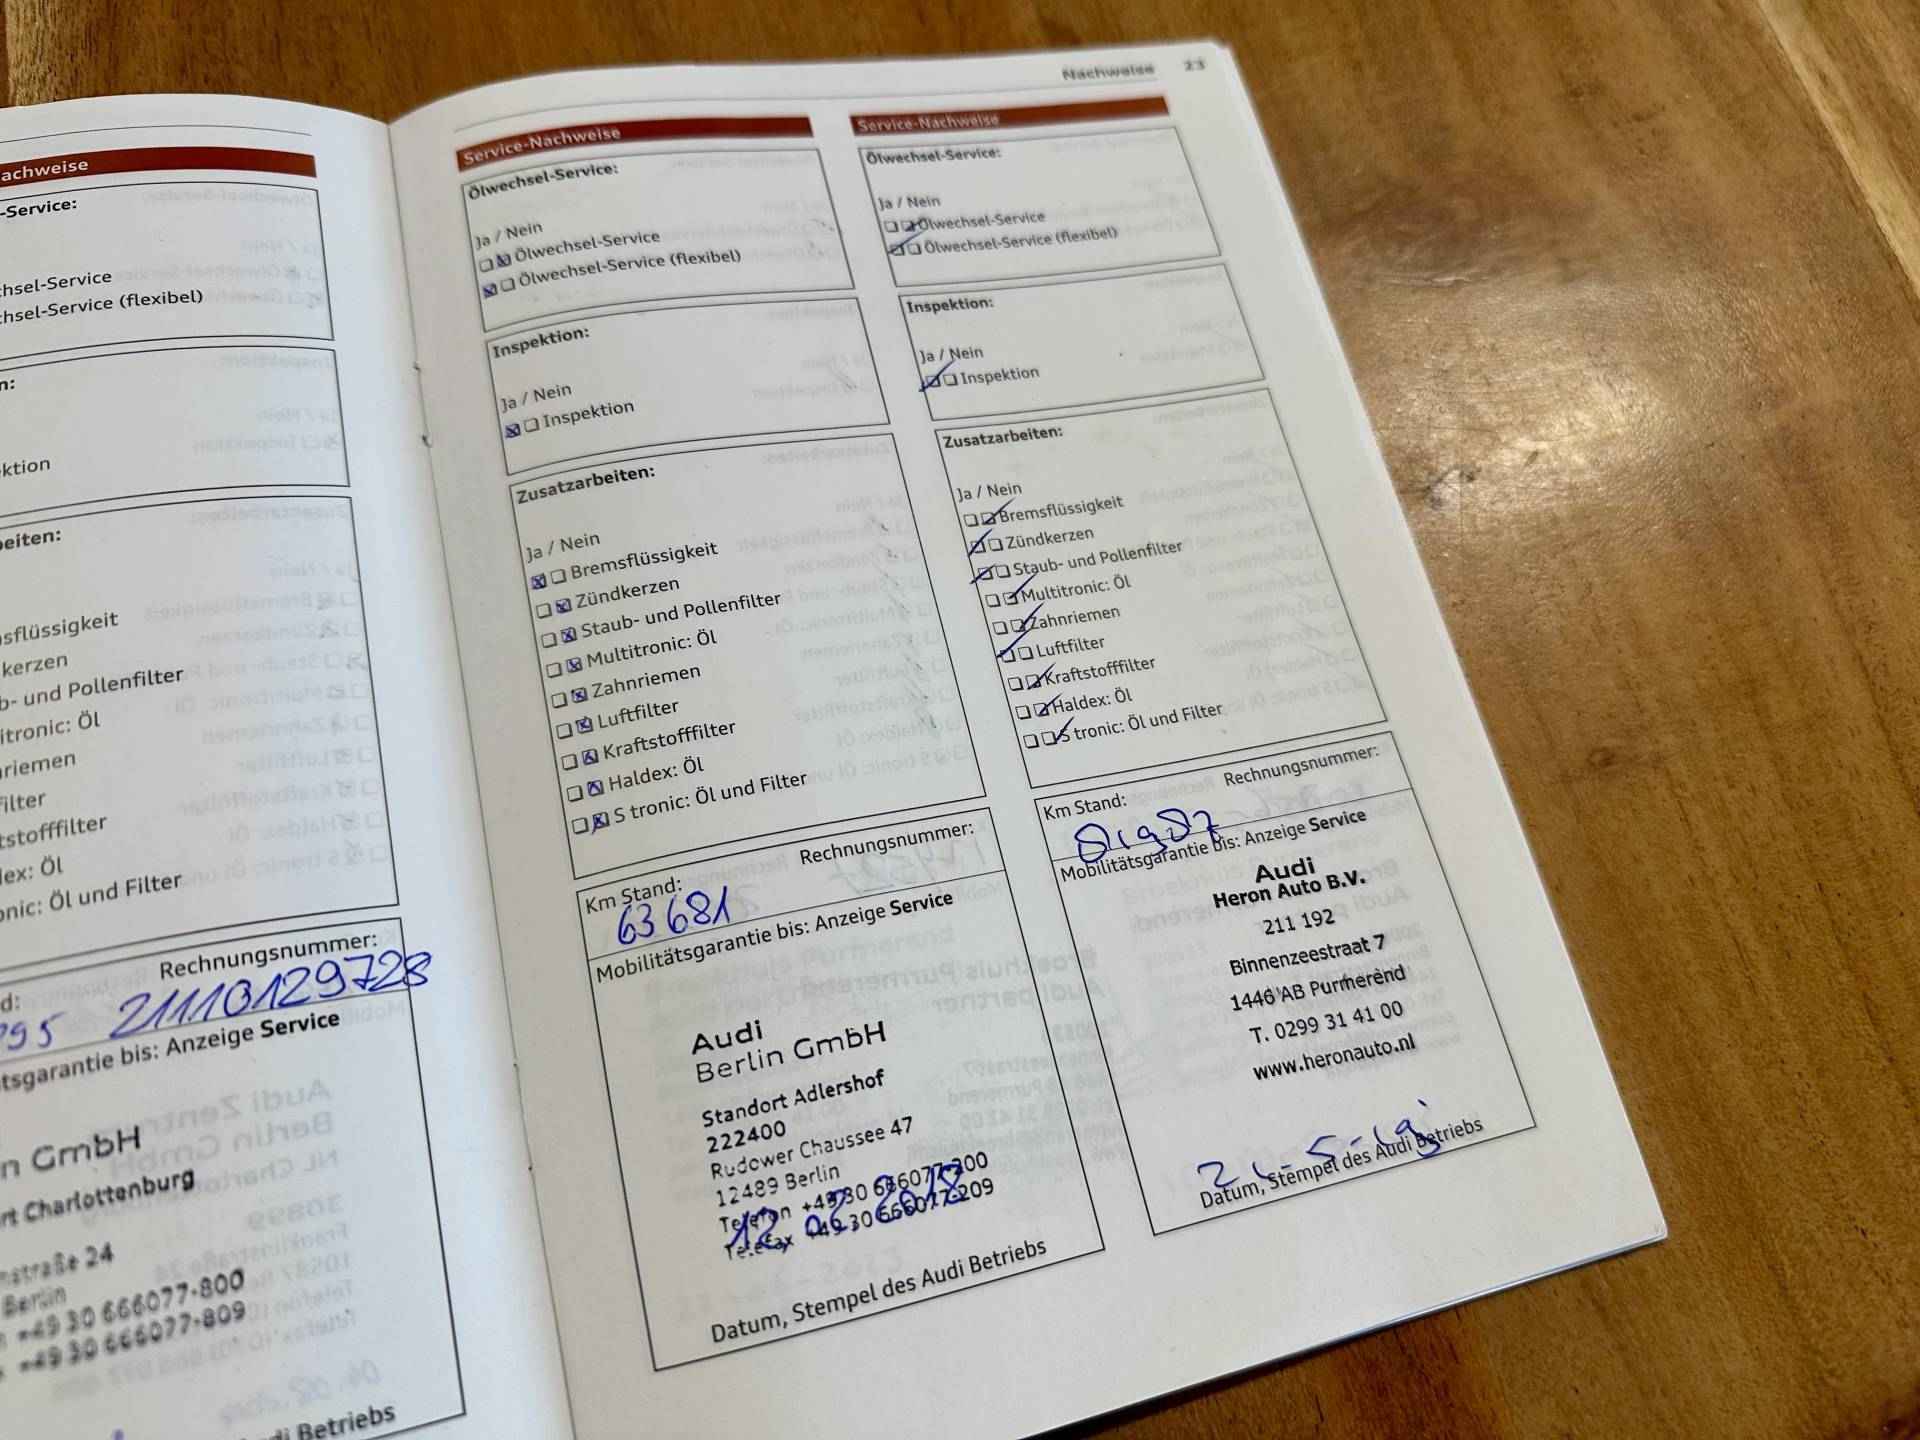 Nachweise 23
achweise
-Service:
hsel-Service
hsel-Service (flexibel)
n:
ktion
eiten:
sflüssigkeit
kerzen
b- und Pollenfilter
itronic: Öl
riemen
filter
tstofffilter
dex: Öl
onic: Öl und Filter
d: Rechnungsnummer:
95 21110129728
tsgarantie bis: Anzeige Service
n GmbH
rt Charlottenburg
nstraße 24
Berlin
+49 30 666077-800
+49 30 666077-809
di Betriebs
Service-Nachweise
Ölwechsel-Service:
Ja / Nein
Ölwechsel-Service
Ölwechsel-Service (flexibel)
Inspektion:
Ja / Nein
Inspektion
Zusatzarbeiten:
Ja / Nein
Bremsflüssigkeit
Zündkerzen
Staub- und Pollenfilter
Multitronic: Öl
Zahnriemen
Luftfilter
Kraftstofffilter
Haldex: Öl
S tronic: Öl und Filter
Km Stand: Rechnungsnummer:
63681
Mobilitätsgarantie bis: Anzeige Service
Audi
Berlin GmbH
Standort Adlershof
222400
Rudower Chaussee 47
12489 Berlin
Telefon +49 30 666077-200
Telefax +49 30 666077-209
12.02.2018
Datum, Stempel des Audi Betriebs
Service-Nachweise
Ölwechsel-Service:
Ja / Nein
Ölwechsel-Service
Ölwechsel-Service (flexibel)
Inspektion:
Ja / Nein
Inspektion
Zusatzarbeiten:
Ja / Nein
Bremsflüssigkeit
Zündkerzen
Staub- und Pollenfilter
Multitronic: Öl
Zahnriemen
Luftfilter
Kraftstofffilter
Haldex: Öl
S tronic: Öl und Filter
Km Stand: Rechnungsnummer:
Mobilitätsgarantie bis: Anzeige Service
Audi
Heron Auto B.V.
211 192
Binnenzeestraat 7
1446 AB Purmerend
T. 0299 31 41 00
www.heronauto.nl
Datum, Stempel des Audi Betriebs